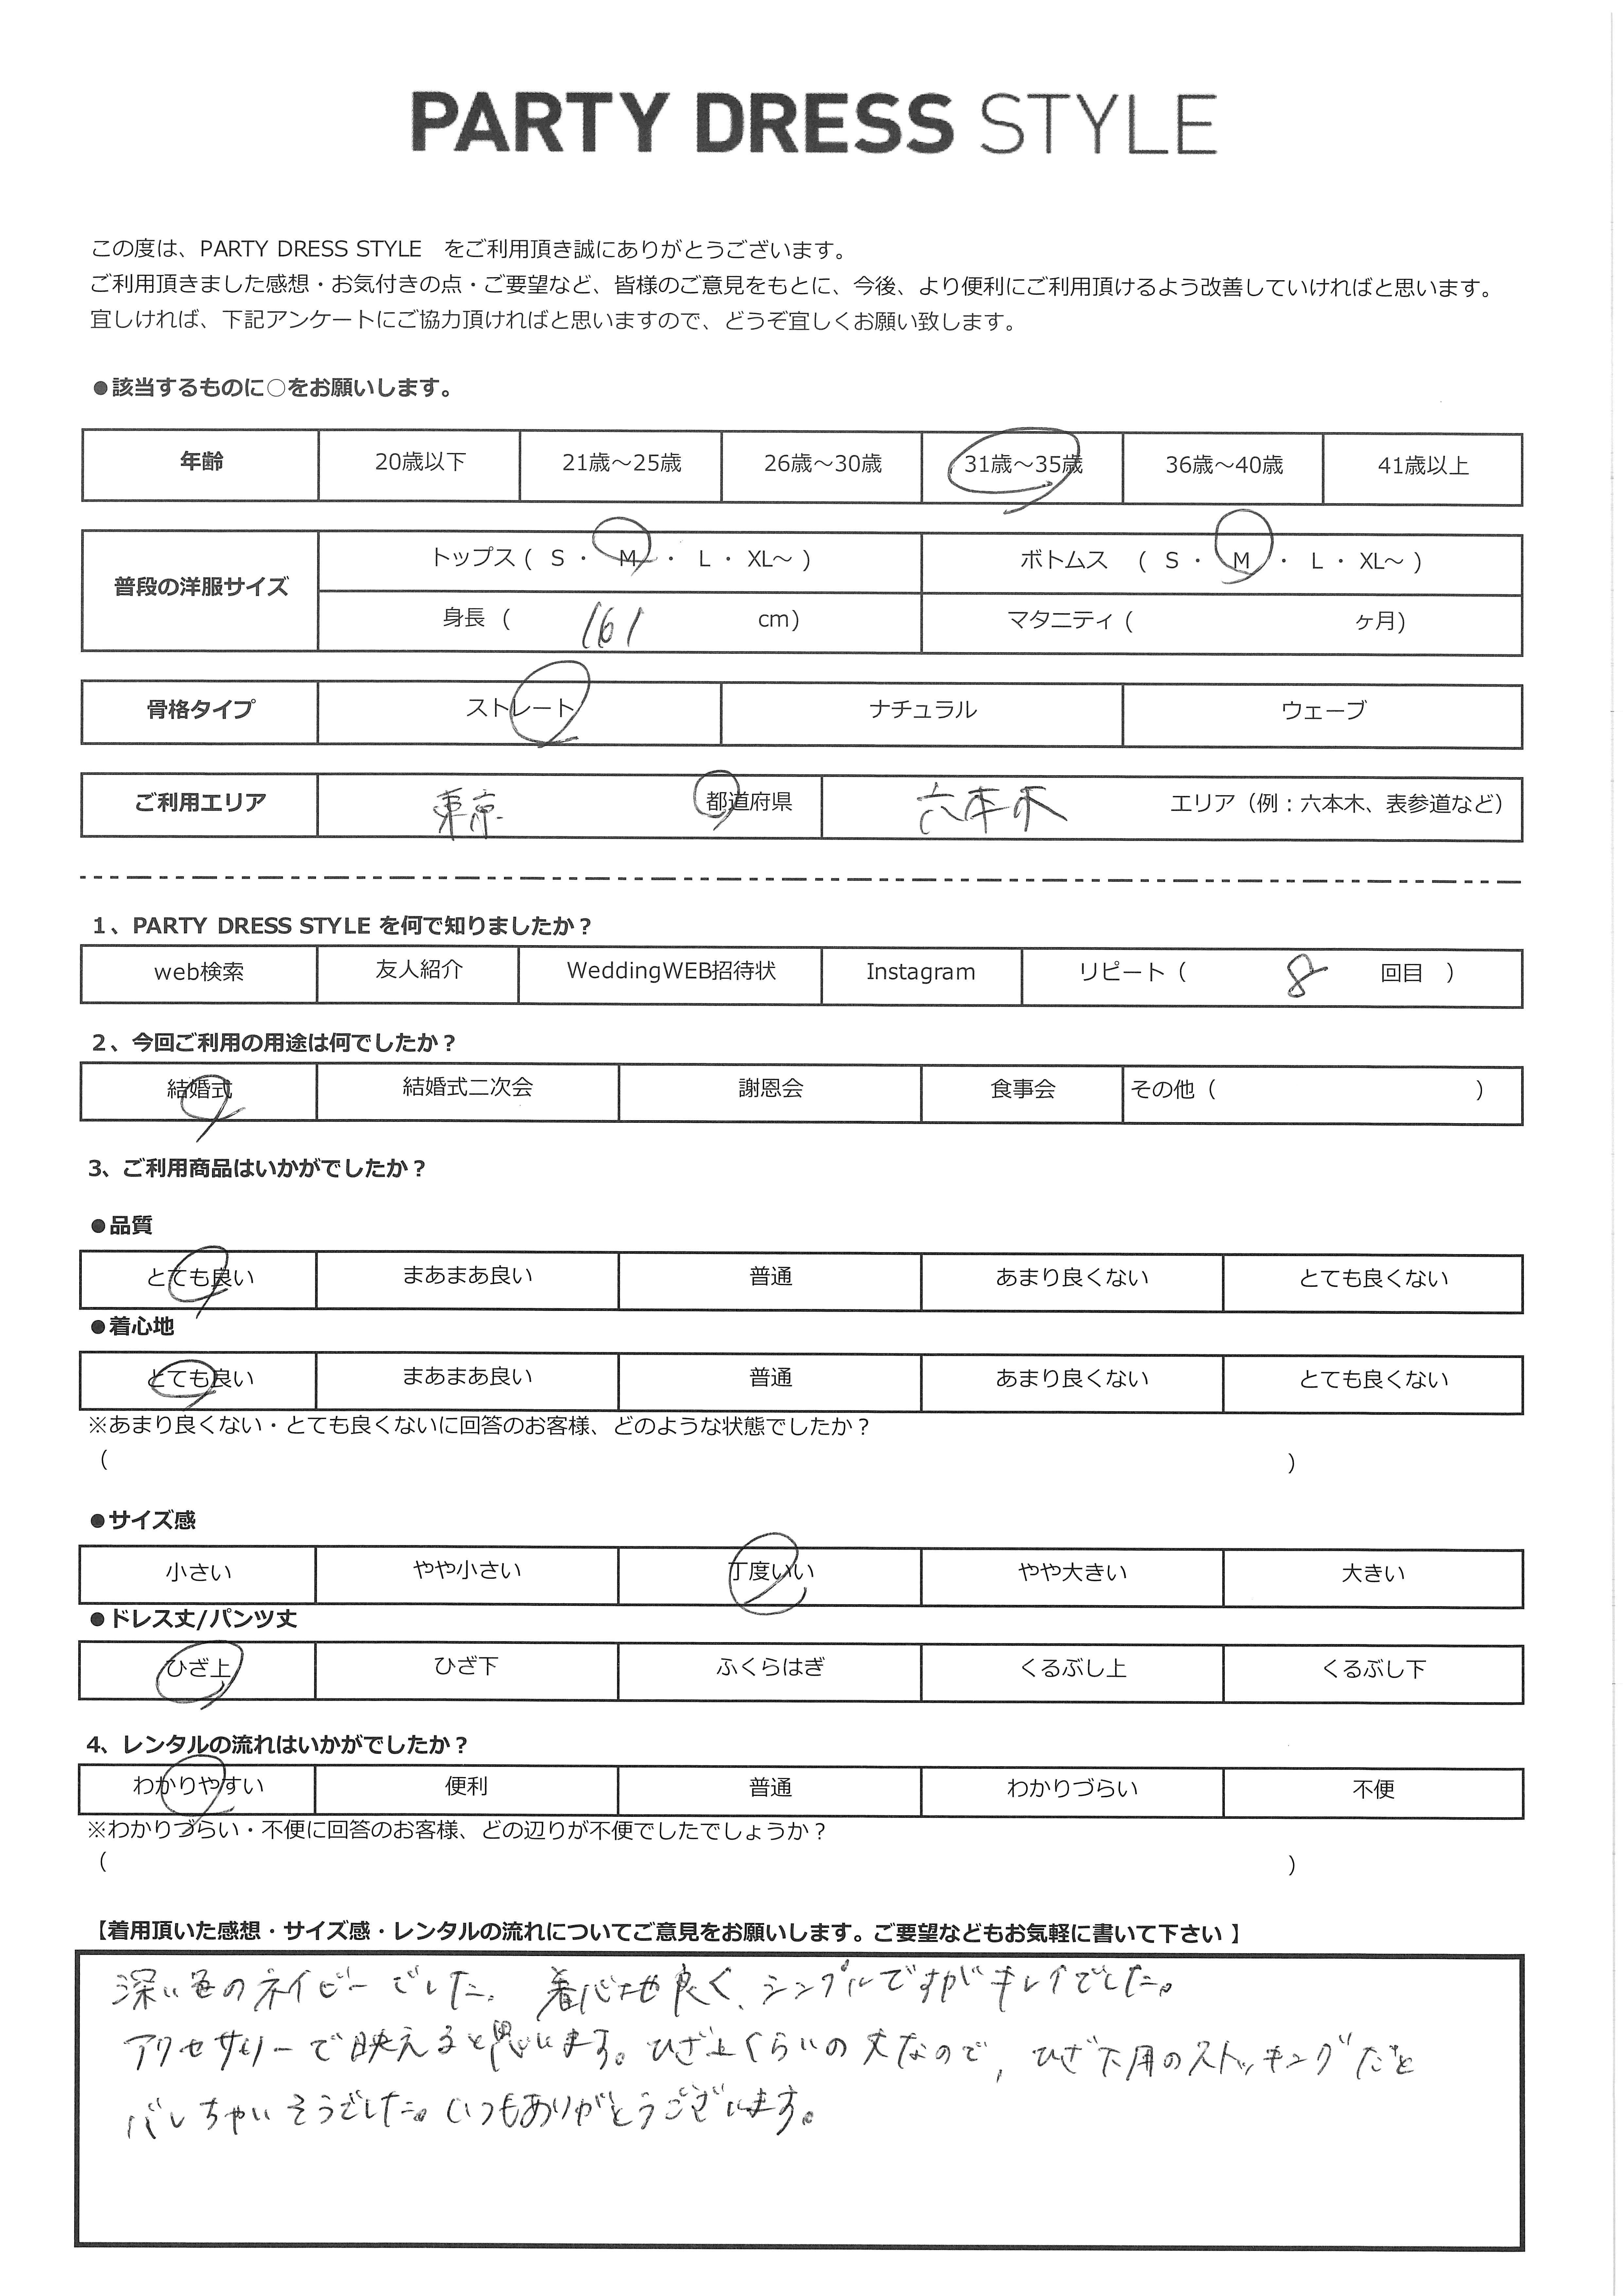 PARTY DRESS STYLE
この度は、PARTY DRESS STYLE　をご利用頂き誠にありがとうございます。
ご利用頂きました感想・お気付きの点・ご要望など、皆様のご意見をもとに、今後、より便利にご利用頂けるよう改善していければと思います。
宜しければ、下記アンケートにご協力頂ければと思いますので、どうぞ宜しくお願い致します。
●該当するものに○をお願いします。
年齢 20歳以下 21歳～25歳 26歳～30歳 31歳～35歳 36歳～40歳 41歳以上
普段の洋服サイズ
トップス（ S ・ M ・ L ・ XL～ ） ボトムス （ S ・ M ・ L ・ XL～ ）
身長（ 161 cm） マタニティ（ ヶ月）
骨格タイプ ストレート ナチュラル ウェーブ
ご利用エリア 東京 都道府県 六本木 エリア（例：六本木、表参道など）
1、PARTY DRESS STYLE を何で知りましたか？
web検索 友人紹介 WeddingWEB招待状 Instagram リピート（ 8 回目 ）
2、今回ご利用の用途は何でしたか？
結婚式 結婚式二次会 謝恩会 食事会 その他（ ）
3、ご利用商品はいかがでしたか？
●品質
とても良い まあまあ良い 普通 あまり良くない とても良くない
●着心地
とても良い まあまあ良い 普通 あまり良くない とても良くない
※あまり良くない・とても良くないに回答のお客様、どのような状態でしたか？
（ ）
●サイズ感
小さい やや小さい 丁度いい やや大きい 大きい
●ドレス丈/パンツ丈
ひざ上 ひざ下 ふくらはぎ くるぶし上 くるぶし下
4、レンタルの流れはいかがでしたか？
わかりやすい 便利 普通 わかりづらい 不便
※わかりづらい・不便に回答のお客様、どの辺りが不便でしたでしょうか？
（ ）
【着用頂いた感想・サイズ感・レンタルの流れについてご意見をお願いします。ご要望などもお気軽に書いて下さい 】
深い色のネイビーでした。着心地良く、シンプルですがキレイでした。
アクセサリーで映えると思います。ひざ上くらいの丈なので、ひざ下用のストッキングだと
バレちゃいそうでした。いつもありがとうございます。